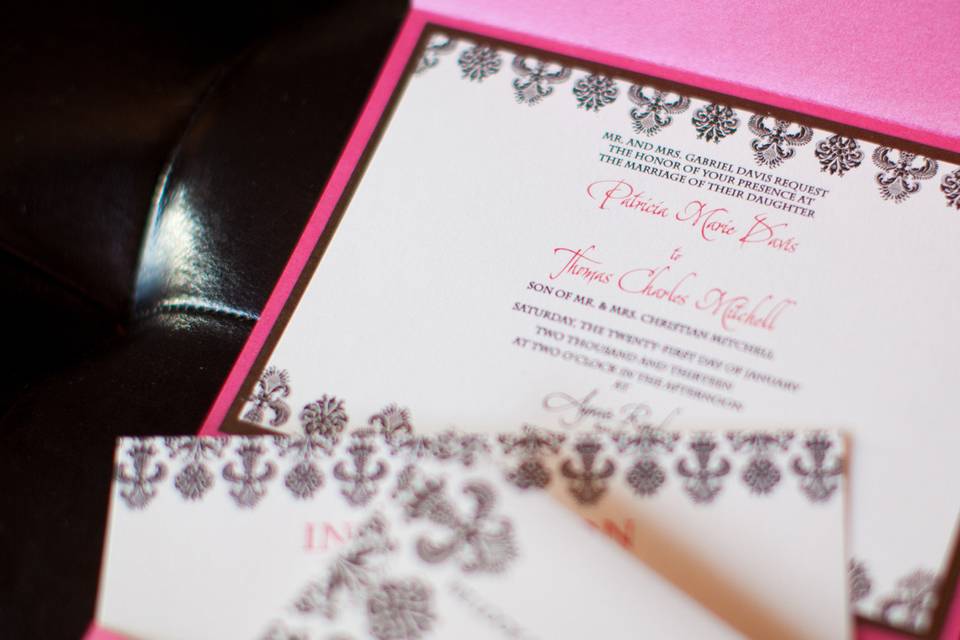 MR. AND MRS. GABRIEL DAVIS REQUEST
THE HONOR OF YOUR PRESENCE AT
THE MARRIAGE OF THEIR DAUGHTER
Patricia Marie Davis
to
Thomas Charles Mitchell
SON OF MR. & MRS. CHRISTIAN MITCHELL
SATURDAY, THE TWENTY-FIRST DAY OF JANUARY
TWO THOUSAND AND THIRTEEN
AT TWO O'CLOCK IN THE AFTERNOON
AT